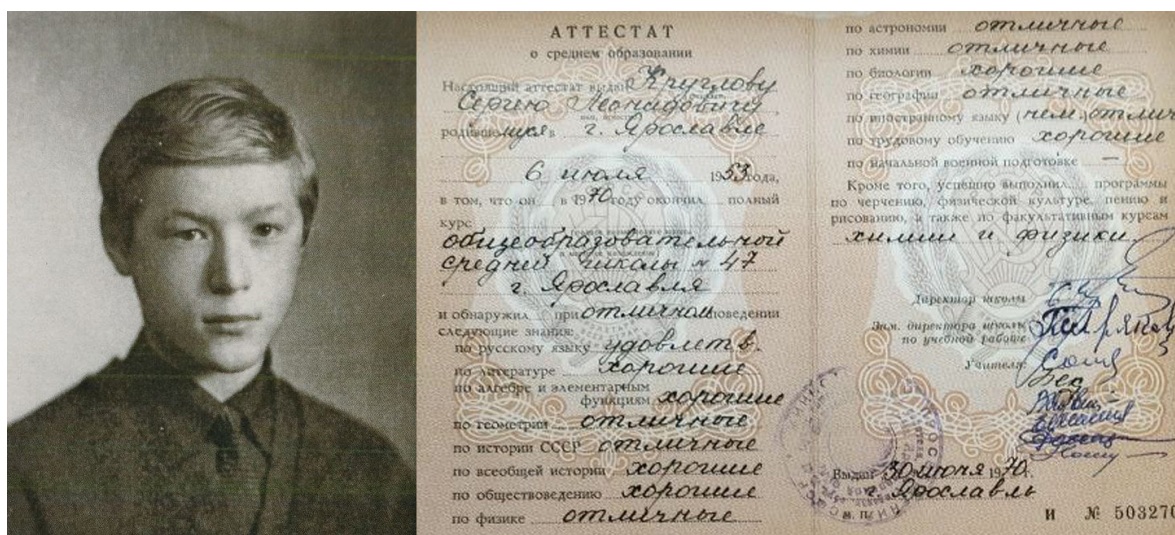 АТТЕСТАТ
о среднем образовании
Настоящий аттестат выдан Круглову
Сергею Леонидовичу
родившемуся в г. Ярославле
6 июля 1953 года,
в том, что он в 1970 году окончил полный
курс
общеобразовательной
средней школы № 47
г. Ярославля
и обнаружил при отличном поведении
следующие знания:
по русскому языку удовлетв.
по литературе хорошие
по алгебре и элементарным
функциям хорошие
по геометрии отличные
по истории СССР отличные
по всеобщей истории хорошие
по обществоведению хорошие
по физике отличные
по астрономии отличные
по химии отличные
по биологии хорошие
по географии отличные
по иностранному языку (нем.) отличн
по трудовому обучению хорошие
по начальной военной подготовке —
Кроме того, успешно выполнил программы
по черчению, физической культуре, пению и
рисованию, а также по факультативным курсам
химии и физики
Директор школы
Зам. директора школы
по учебной работе
Учителя:
Выдан 30 июня 1970 г.
Ярославль
М. П.
И № 503270